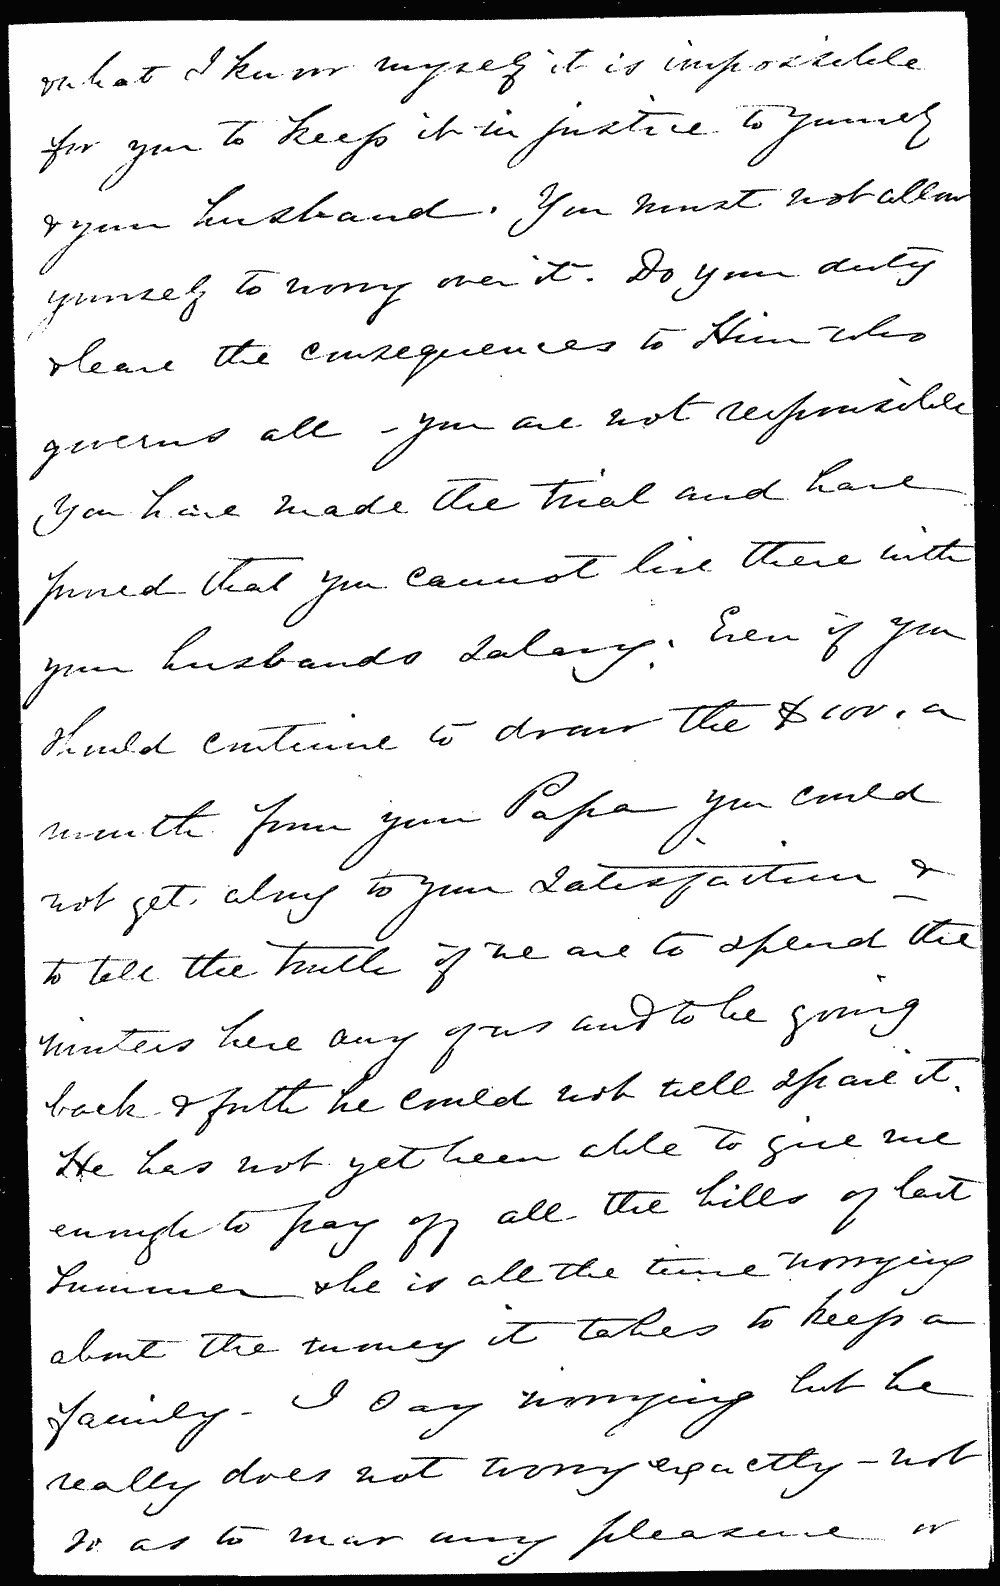 what I know myself it is impossible
for you to keep it in justice to yourself
& your husband. You must not allow
yourself to worry over it. Do your duty
& leave the consequences to Him who
governs all - you are not responsible
You have made the trial and have
proved that you cannot live there with
your husbands salary. Even if you
should continue to draw the $100. a
month from your Papa you could
not get along to your satisfaction &
to tell the truth if we are to spend the
winters here any of us and to be going
back & forth he could not well spare it.
He has not yet been able to give me
enough to pay off all the bills of last
summer & he is all the time worrying
about the money it takes to keep a
family - I say worrying but he
really does not worry exactly - not
so as to mar any pleasure or